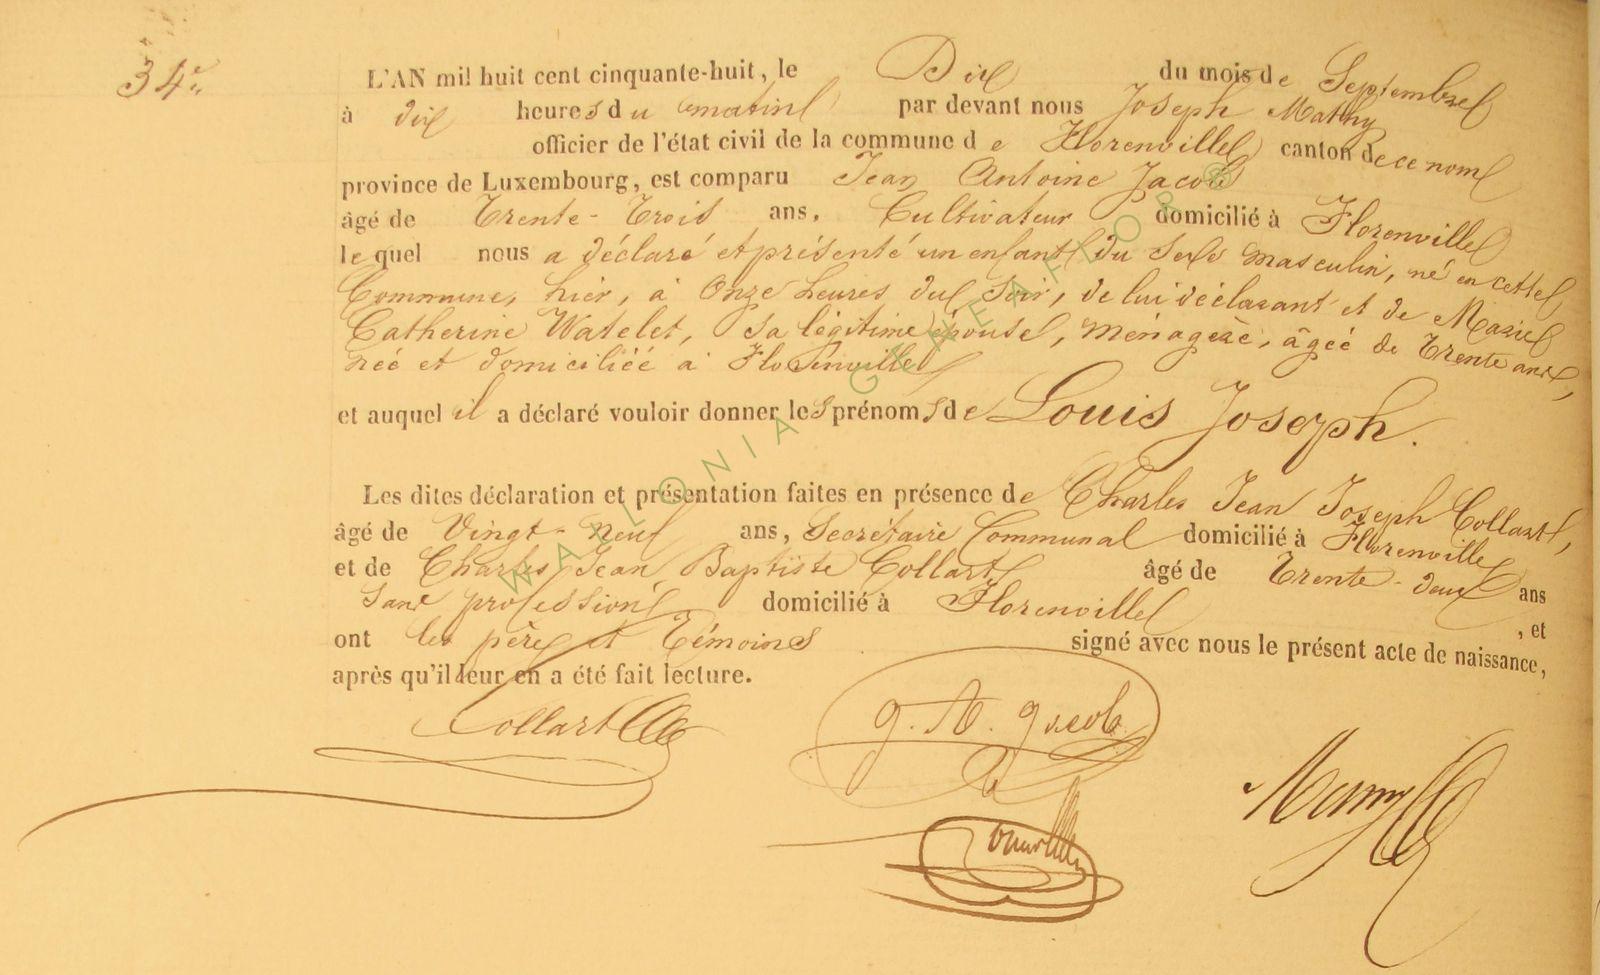 34e
L'AN mil huit cent cinquante-huit, le Dix du mois de Septembre
à dix heures du matin par devant nous Joseph Mathy
officier de l'état civil de la commune de Florenville canton de ce nom
province de Luxembourg, est comparu Jean Antoine Jacob
âgé de Trente-Trois ans, Cultivateur domicilié à Florenville
lequel nous a déclaré et présenté un enfant du Sexe masculin, né en cette
Commune, hier, à Onze heures du Soir, de lui déclarant et de Marie
Catherine Watelet, Sa légitime épouse, Ménagère, âgée de Trente ans,
née et domiciliée à Florenville
et auquel il a déclaré vouloir donner les prénoms de Louis Joseph.
Les dites déclaration et présentation faites en présence de Charles Jean Joseph Collart,
âgé de Vingt-neuf ans, Secrétaire Communal domicilié à Florenville
et de Charles Jean Baptiste Collart âgé de Trente-deux ans
Sans profession domicilié à Florenville , et
ont les père et Témoins signé avec nous le présent acte de naissance,
après qu'il leur en a été fait lecture.
Collart
J. A. Jacob
WALLONIA GENEAFLOR ®